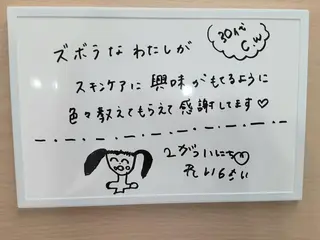 30代
C.W
ズボラなわたしが
スキンケアに興味がもてるように
色々教えてもらえて感謝してます♡
2がついにち